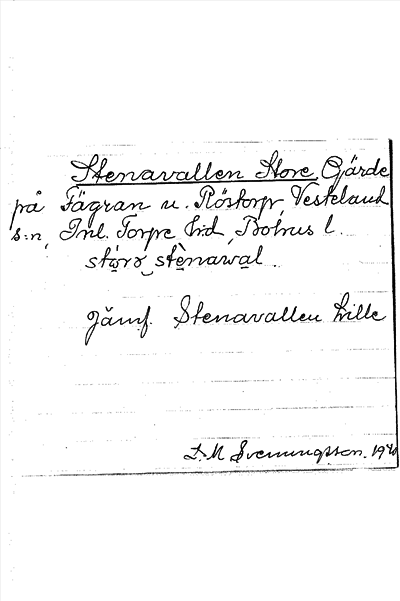 Stenavallen Store, Gärde
på Fägran u. Röstorp, Vesteland
s:n, Inl. Torpe hd, Bohus l.
Jämf. Stenavallen Lille
D.M Svenningsson. 1940